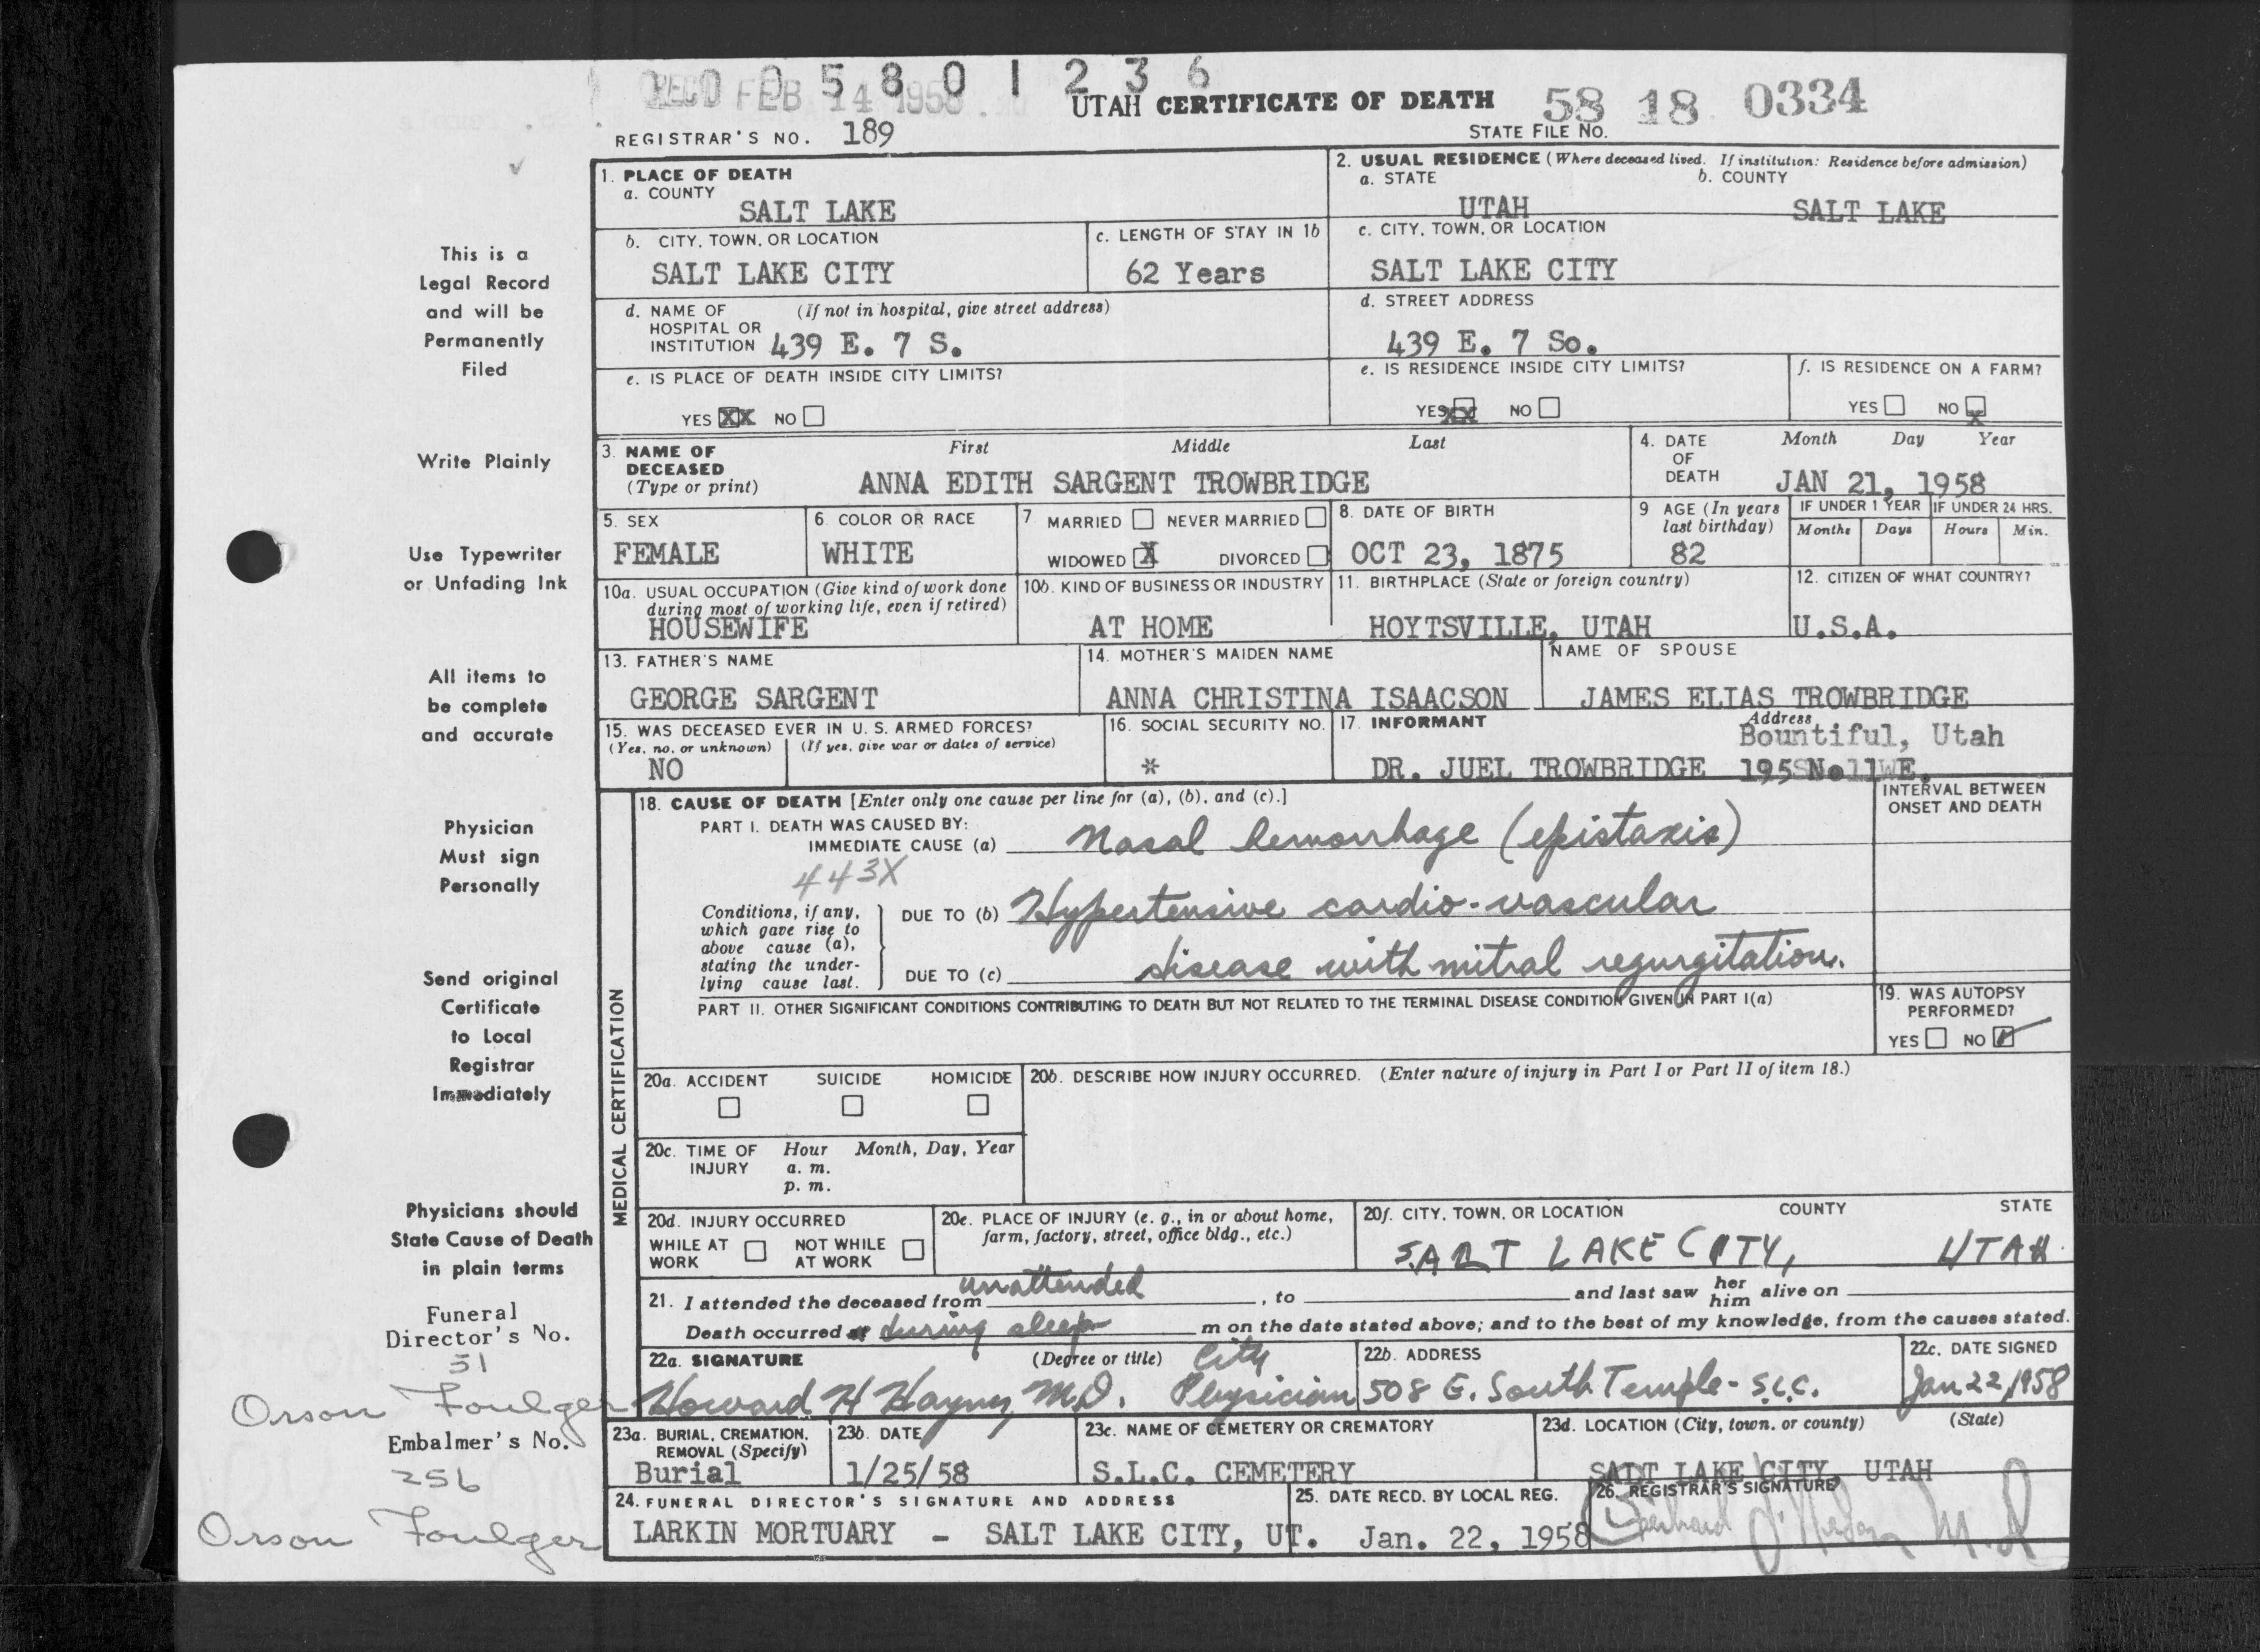 0 0 0 5 8 0 1 2 3 6
REC'D FEB 14 1958
UTAH CERTIFICATE OF DEATH
58 18 0334
REGISTRAR'S NO. 189
STATE FILE NO.
This is a
Legal Record
and will be
Permanently
Filed
Write Plainly
Use Typewriter
or Unfading Ink
All items to
be complete
and accurate
Physician
Must sign
Personally
Send original
Certificate
to Local
Registrar
Immediately
Physicians should
State Cause of Death
in plain terms
Funeral
Director's No.
51
Orson Foulger
Embalmer's No.
256
Orson Foulger
1. PLACE OF DEATH
a. COUNTY
SALT LAKE
2. USUAL RESIDENCE (Where deceased lived. If institution: Residence before admission)
a. STATE b. COUNTY
UTAH SALT LAKE
b. CITY, TOWN, OR LOCATION
SALT LAKE CITY
c. LENGTH OF STAY IN 1b
62 Years
c. CITY, TOWN, OR LOCATION
SALT LAKE CITY
d. NAME OF (If not in hospital, give street address)
HOSPITAL OR
INSTITUTION 439 E. 7 S.
d. STREET ADDRESS
439 E. 7 So.
e. IS PLACE OF DEATH INSIDE CITY LIMITS?
YES XX NO
e. IS RESIDENCE INSIDE CITY LIMITS?
YES XX NO
f. IS RESIDENCE ON A FARM?
YES NO X
3. NAME OF First Middle Last
DECEASED
(Type or print) ANNA EDITH SARGENT TROWBRIDGE
4. DATE Month Day Year
OF
DEATH JAN 21, 1958
5. SEX
FEMALE
6. COLOR OR RACE
WHITE
7. MARRIED NEVER MARRIED
WIDOWED X DIVORCED
8. DATE OF BIRTH
OCT 23, 1875
9. AGE (In years
last birthday)
82
IF UNDER 1 YEAR IF UNDER 24 HRS.
Months Days Hours Min.
10a. USUAL OCCUPATION (Give kind of work done
during most of working life, even if retired)
HOUSEWIFE
10b. KIND OF BUSINESS OR INDUSTRY
AT HOME
11. BIRTHPLACE (State or foreign country)
HOYTSVILLE, UTAH
12. CITIZEN OF WHAT COUNTRY?
U.S.A.
13. FATHER'S NAME
GEORGE SARGENT
14. MOTHER'S MAIDEN NAME
ANNA CHRISTINA ISAACSON
NAME OF SPOUSE
JAMES ELIAS TROWBRIDGE
15. WAS DECEASED EVER IN U. S. ARMED FORCES?
(Yes, no, or unknown) (If yes, give war or dates of service)
NO
16. SOCIAL SECURITY NO.
*
17. INFORMANT Address
Bountiful, Utah
DR. JUEL TROWBRIDGE 195
MEDICAL CERTIFICATION
18. CAUSE OF DEATH [Enter only one cause per line for (a), (b), and (c).]
INTERVAL BETWEEN
ONSET AND DEATH
PART I. DEATH WAS CAUSED BY:
IMMEDIATE CAUSE (a) Nasal hemorrhage (epistaxis)
443X
Conditions, if any,
which gave rise to
above cause (a),
stating the under-
lying cause last.
DUE TO (b) Hypertensive cardio-vascular
DUE TO (c) disease with mitral regurgitation.
PART II. OTHER SIGNIFICANT CONDITIONS CONTRIBUTING TO DEATH BUT NOT RELATED TO THE TERMINAL DISEASE CONDITION GIVEN IN PART I(a)
19. WAS AUTOPSY
PERFORMED?
YES NO
20a. ACCIDENT SUICIDE HOMICIDE
20b. DESCRIBE HOW INJURY OCCURRED. (Enter nature of injury in Part I or Part II of item 18.)
20c. TIME OF Hour Month, Day, Year
INJURY a. m.
p. m.
20d. INJURY OCCURRED
WHILE AT NOT WHILE
WORK AT WORK
20e. PLACE OF INJURY (e. g., in or about home,
farm, factory, street, office bldg., etc.)
20f. CITY, TOWN, OR LOCATION COUNTY STATE
SALT LAKE CITY, UTAH
21. I attended the deceased from unattended, to and last saw her him alive on
Death occurred at during sleep m on the date stated above; and to the best of my knowledge, from the causes stated.
22a. SIGNATURE (Degree or title) City
Howard H Haynes, M.D. Physician
22b. ADDRESS
508 E. South Temple - S.L.C.
22c. DATE SIGNED
Jan 22, 1958
23a. BURIAL, CREMATION,
REMOVAL (Specify)
Burial
23b. DATE
1/25/58
23c. NAME OF CEMETERY OR CREMATORY
S.L.C. CEMETERY
23d. LOCATION (City, town, or county) (State)
SALT LAKE CITY, UTAH
24. FUNERAL DIRECTOR'S SIGNATURE AND ADDRESS
LARKIN MORTUARY - SALT LAKE CITY, UT.
25. DATE RECD. BY LOCAL REG.
Jan. 22, 1958
26. REGISTRAR'S SIGNATURE